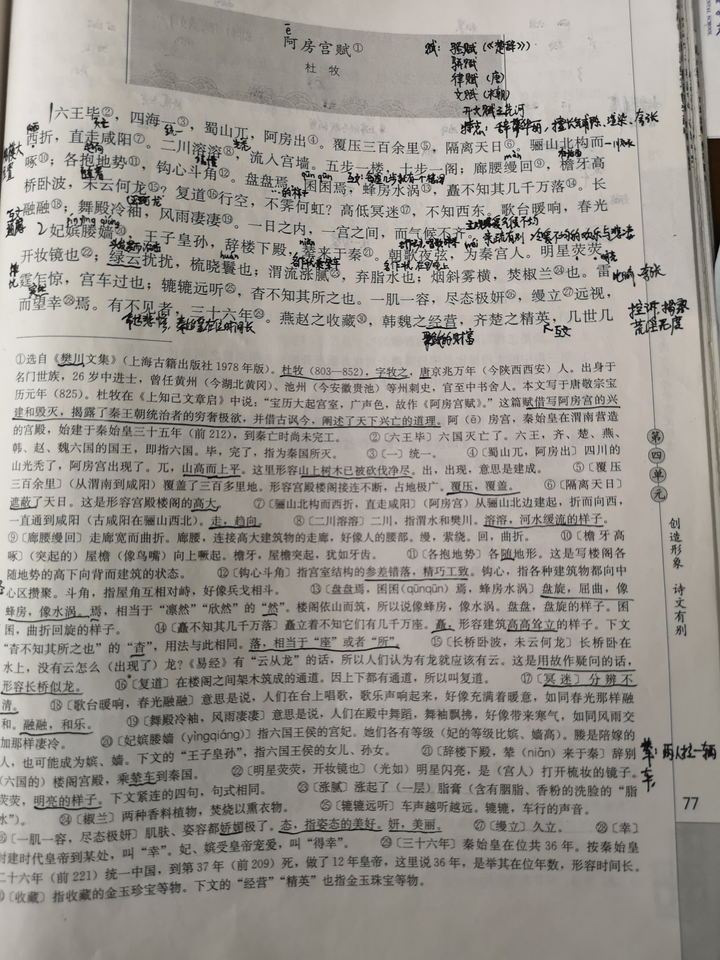 阿房宫赋①
ē
杜 牧
赋：骚赋（《楚辞》）
骈赋
律赋（唐）
文赋（宋朝）
六王毕②，四海一③，蜀山兀，阿房出④。覆压三百余里⑤，隔离天日⑥。骊山北构而
西折，直走咸阳⑦。二川溶溶⑧，流入宫墙。五步一楼，十步一阁；廊腰缦回⑨，檐牙高
啄⑩；各抱地势⑪，钩心斗角⑫。盘盘焉，囷囷焉，蜂房水涡⑬，矗不知其几千万落⑭。长
桥卧波，未云何龙⑮？复道⑯行空，不霁何虹？高低冥迷⑰，不知西东。歌台暖响，春光
融融⑱；舞殿冷袖，风雨凄凄⑲。一日之内，一宫之间，而气候不齐。
妃嫔媵嫱⑳，王子皇孙，辞楼下殿，辇来于秦㉑。朝歌夜弦，为秦宫人。明星荧荧，
开妆镜也㉒；绿云扰扰，梳晓鬟也；渭流涨腻㉓，弃脂水也；烟斜雾横，焚椒兰㉔也。雷
霆乍惊，宫车过也；辘辘远听㉕，杳不知其所之也。一肌一容，尽态极妍㉖，缦立㉗远视，
而望幸㉘焉。有不见者，三十六年㉙。燕赵之收藏㉚，韩魏之经营，齐楚之精英，几世几
①选自《樊川文集》（上海古籍出版社1978年版）。杜牧（803—852），字牧之，唐京兆万年（今陕西西安）人。出身于
名门世族，26岁中进士，曾任黄州（今湖北黄冈）、池州（今安徽贵池）等州刺史，官至中书舍人。本文写于唐敬宗宝
历元年（825）。杜牧在《上知己文章启》中说：“宝历大起宫室，广声色，故作《阿房宫赋》。”这篇赋借写阿房宫的兴
建和毁灭，揭露了秦王朝统治者的穷奢极欲，并借古讽今，阐述了天下兴亡的道理。阿（ē）房宫，秦始皇在渭南营造
的宫殿，始建于秦始皇三十五年（前212），到秦亡时尚未完工。 ②〔六王毕〕六国灭亡了。六王，齐、楚、燕、
韩、赵、魏六国的国王，即指六国。毕，完了，指为秦国所灭。 ③〔一〕统一。 ④〔蜀山兀，阿房出〕四川的
山光秃了，阿房宫出现了。兀，山高而上平。这里形容山上树木已被砍伐净尽。出，出现，意思是建成。 ⑤〔覆压
三百余里〕（从渭南到咸阳）覆盖了三百多里地。形容宫殿楼阁接连不断，占地极广。覆压，覆盖。 ⑥〔隔离天日〕
遮蔽了天日。这是形容宫殿楼阁的高大。 ⑦〔骊山北构而西折，直走咸阳〕（阿房宫）从骊山北边建起，折而向西，
一直通到咸阳（古咸阳在骊山西北）。走，趋向。 ⑧〔二川溶溶〕二川，指渭水和樊川。溶溶，河水缓流的样子。
⑨〔廊腰缦回〕走廊宽而曲折。廊腰，连接高大建筑物的走廊，好像人的腰部。缦，萦绕。回，曲折。 ⑩〔檐牙高
啄〕（突起的）屋檐（像鸟嘴）向上撅起。檐牙，屋檐突起，犹如牙齿。 ⑪〔各抱地势〕各随地形。这是写楼阁各
随地势的高下向背而建筑的状态。 ⑫〔钩心斗角〕指宫室结构的参差错落，精巧工致。钩心，指各种建筑物都向中
心区攒聚。斗角，指屋角互相对峙，好像兵戈相斗。 ⑬〔盘盘焉，囷囷（qūnqūn）焉，蜂房水涡〕盘旋，屈曲，像
蜂房，像水涡。焉，相当于“凛然”“欣然”的“然”。楼阁依山而筑，所以说像蜂房，像水涡。盘盘，盘旋的样子。囷
囷，曲折回旋的样子。 ⑭〔矗不知其几千万落〕矗立着不知它们有几千万座。矗，形容建筑高高耸立的样子。下文
“杳不知其所之也”的“杳”，用法与此相同。落，相当于“座”或者“所”。 ⑮〔长桥卧波，未云何龙〕长桥卧在
水上，没有云怎么（出现了）龙？《易经》有“云从龙”的话，所以人们认为有龙就应该有云。这是用故作疑问的话，
形容长桥似龙。 ⑯〔复道〕在楼阁之间架木筑成的通道。因上下都有通道，所以叫复道。 ⑰〔冥迷〕分辨不
清。 ⑱〔歌台暖响，春光融融〕意思是说，人们在台上唱歌，歌乐声响起来，好像充满着暖意，如同春光那样融
和。融融，和乐。 ⑲〔舞殿冷袖，风雨凄凄〕意思是说，人们在殿中舞蹈，舞袖飘拂，好像带来寒气，如同风雨交
加那样凄冷。 ⑳〔妃嫔媵嫱（yìngqiáng）〕指六国王侯的宫妃。她们各有等级（妃的等级比嫔、嫱高）。媵是陪嫁的
人，也可能成为嫔、嫱。下文的“王子皇孙”，指六国王侯的女儿、孙女。 ㉑〔辞楼下殿，辇（niǎn）来于秦〕辞别
（六国的）楼阁宫殿，乘辇车到秦国。 ㉒〔明星荧荧，开妆镜也〕（光如）明星闪亮，是（宫人）打开梳妆的镜子。
荧荧，明亮的样子。下文紧连的四句，句式相同。 ㉓〔涨腻〕涨起了（一层）脂膏（含有胭脂、香粉的洗脸的“脂
水”）。 ㉔〔椒兰〕两种香料植物，焚烧以熏衣物。 ㉕〔辘辘远听〕车声越听越远。辘辘，车行的声音。
㉖〔一肌一容，尽态极妍〕肌肤、姿容都娇媚极了。态，指姿态的美好。妍，美丽。 ㉗〔缦立〕久立。 ㉘〔幸〕
封建时代皇帝到某处，叫“幸”。妃、嫔受皇帝宠爱，叫“得幸”。 ㉙〔三十六年〕秦始皇在位共36年。按秦始皇
二十六年（前221）统一中国，到第37年（前209）死，做了12年皇帝，这里说36年，是举其在位年数，形容时间长。
㉚〔收藏〕指收藏的金玉珍宝等物。下文的“经营”“精英”也指金玉珠宝等物。
第四单元
创造形象 诗文有别
77